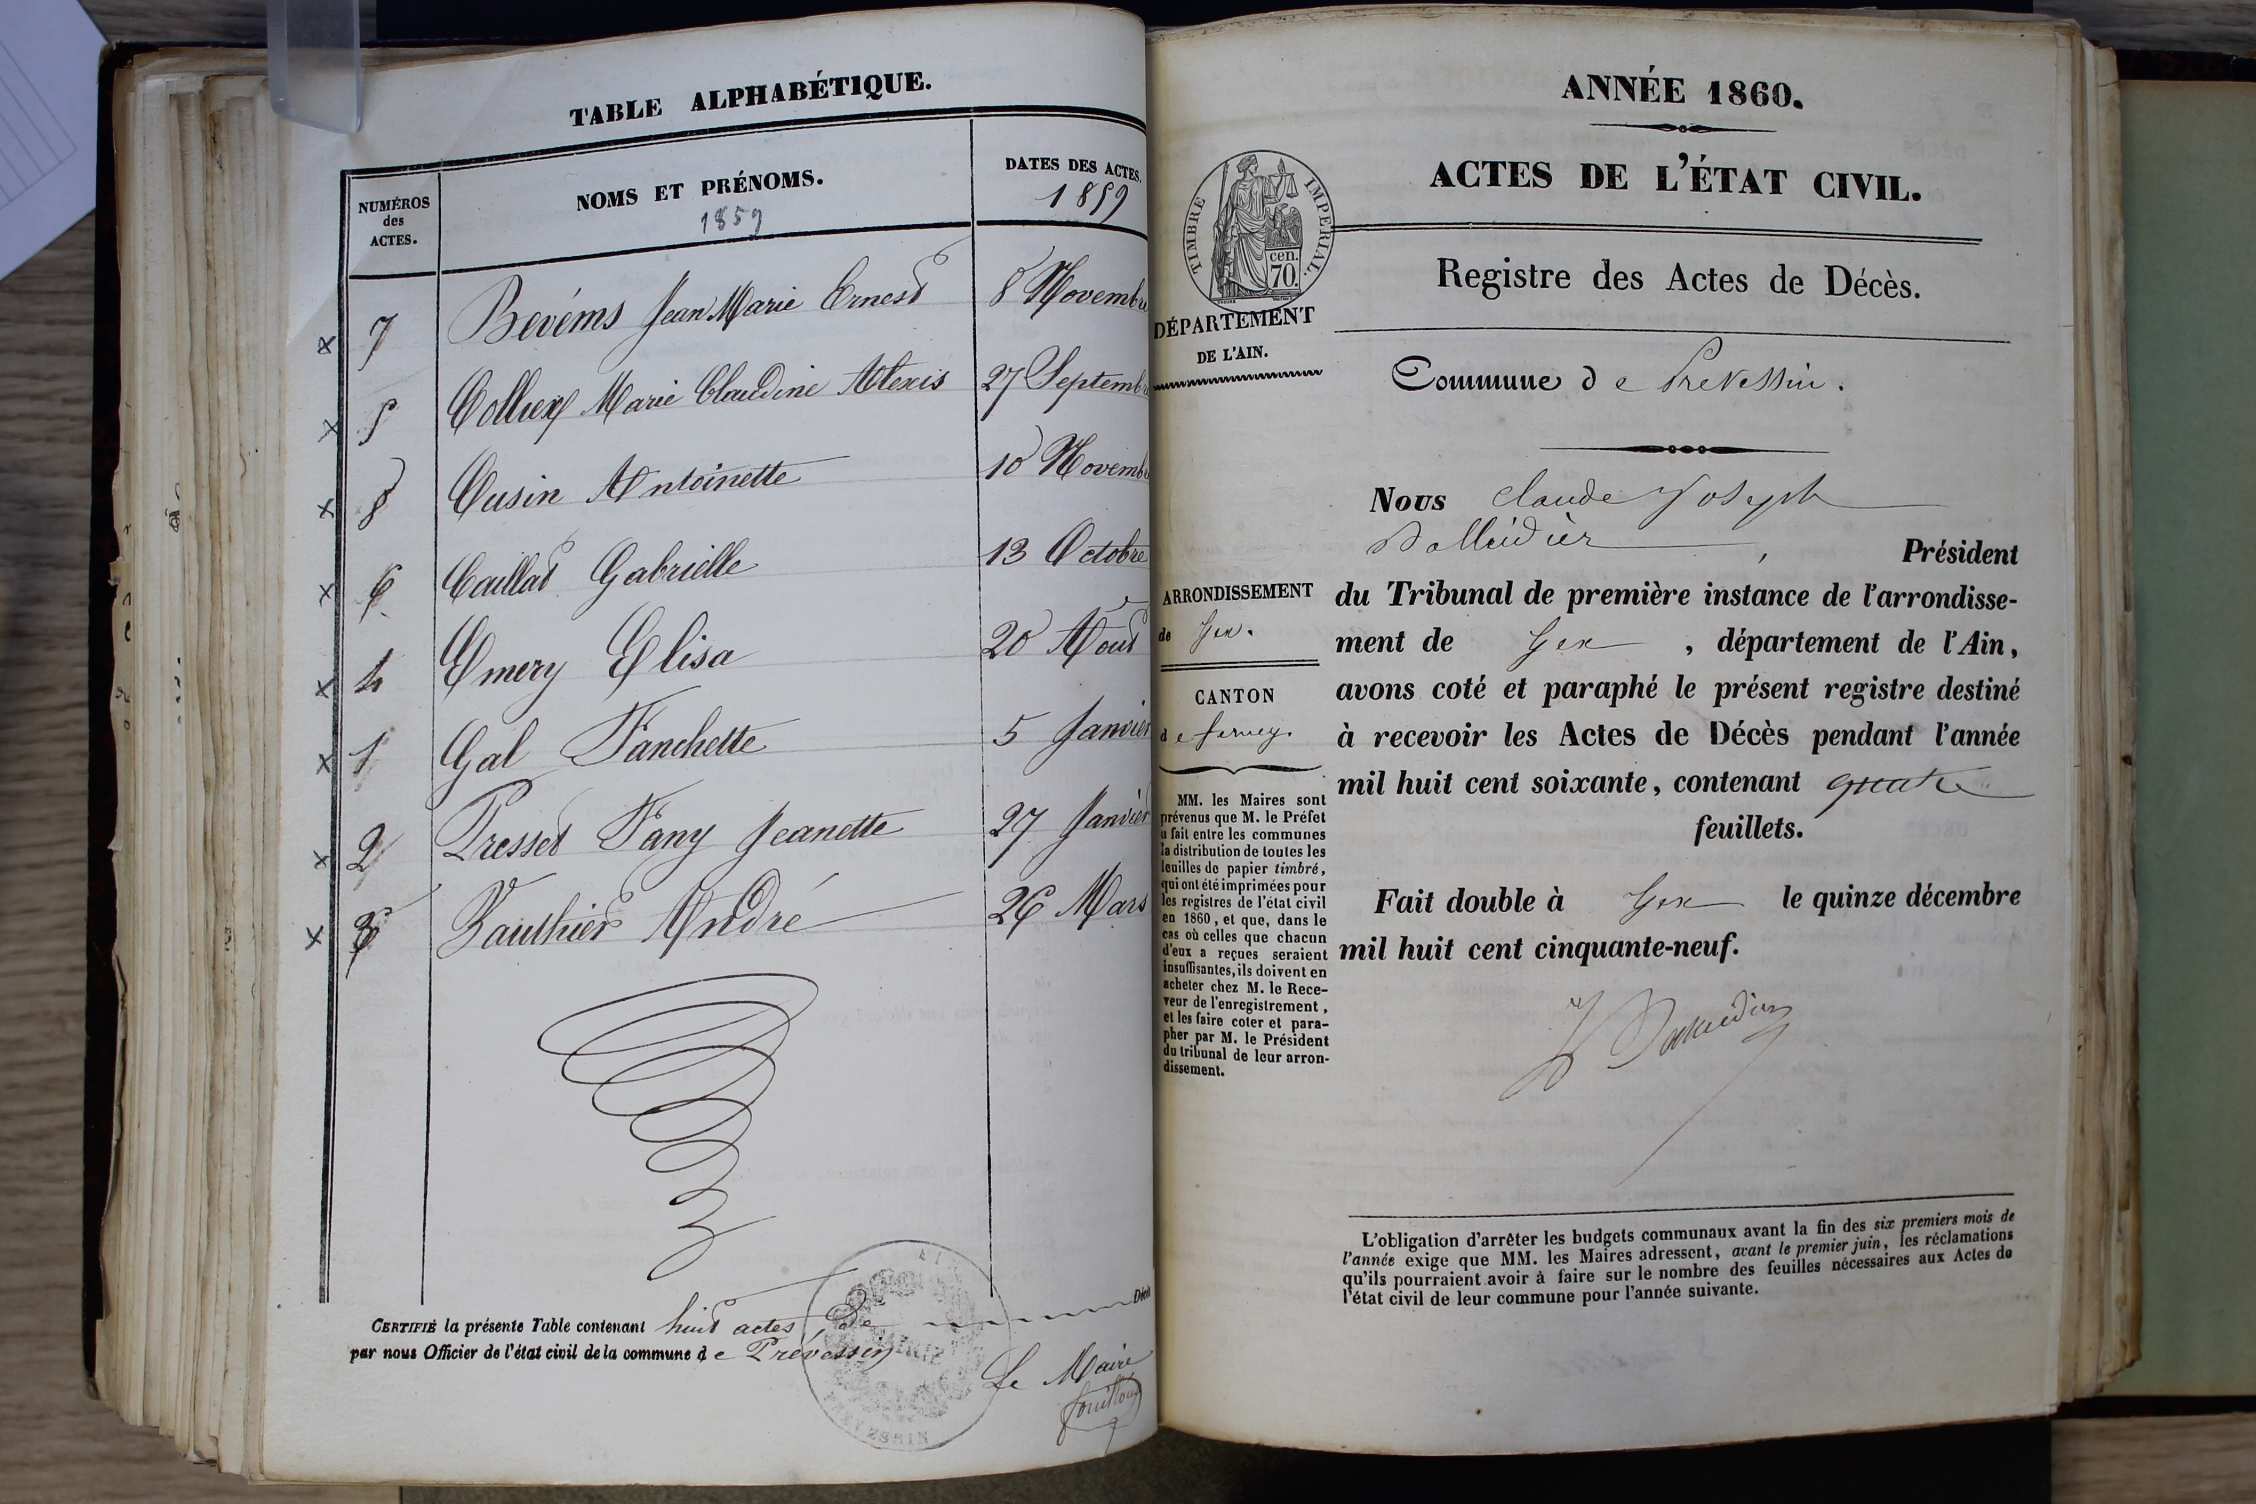 TABLE ALPHABÉTIQUE.
NUMÉROS des ACTES.
NOMS ET PRÉNOMS.
1859
DATES DES ACTES.
1859
7 Bevéms Jean Marie Ernest 8 Novembre
5 Colliex Marie Claudine Alexis 27 Septembre
8 Cusin Antoinette 10 Novembre
6 Caillat Gabrielle 13 Octobre
4 Emery Elisa 20 Août
1 Gal Fanchette 5 Janvier
2 Presset Fany Jeanette 27 Janvier
3 Vauthier André 26 Mars
CERTIFIÉ la présente Table contenant huit actes de Décès
par nous Officier de l'état civil de la commune de Prévessin
Le Maire
ANNÉE 1860.
ACTES DE L'ÉTAT CIVIL.
TIMBRE IMPERIAL.
cen.
70.
Registre des Actes de Décès.
DÉPARTEMENT
DE L'AIN.
Commune de Prevessin.
Nous Claude Joseph
Président
du Tribunal de première instance de l'arrondisse-
ment de Gex, département de l'Ain,
avons coté et paraphé le présent registre destiné
à recevoir les Actes de Décès pendant l'année
mil huit cent soixante, contenant quatre
feuillets.
Fait double à Gex le quinze décembre
mil huit cent cinquante-neuf.
ARRONDISSEMENT
de Gex.
CANTON
de ferney.
MM. les Maires sont
prévenus que M. le Préfet
a fait entre les communes
la distribution de toutes les
feuilles de papier timbré,
qui ont été imprimées pour
les registres de l'état civil
en 1860, et que, dans le
cas où celles que chacun
d'eux a reçues seraient
insuffisantes, ils doivent en
acheter chez M. le Rece-
veur de l'enregistrement,
et les faire coter et para-
pher par M. le Président
du tribunal de leur arron-
dissement.
L'obligation d'arrêter les budgets communaux avant la fin des six premiers mois de
l'année exige que MM. les Maires adressent, avant le premier juin, les réclamations
qu'ils pourraient avoir à faire sur le nombre des feuilles nécessaires aux Actes de
l'état civil de leur commune pour l'année suivante.